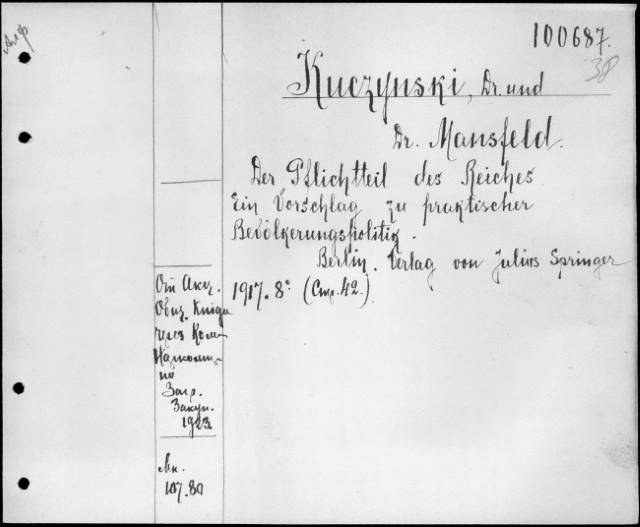 100687.
38
Kuczynski, Dr. und
Dr. Mansfeld.
Der Pflichtteil des Reiches
Ein Vorschlag zu praktischer
Bevölkerungspolitik.
Berlin. Verlag von Julius Springer
1917. 8° (Стр. 42.)
От Акц.
Общ. Книга
через Ком.
Загр.
Закуп.
1923
107.80